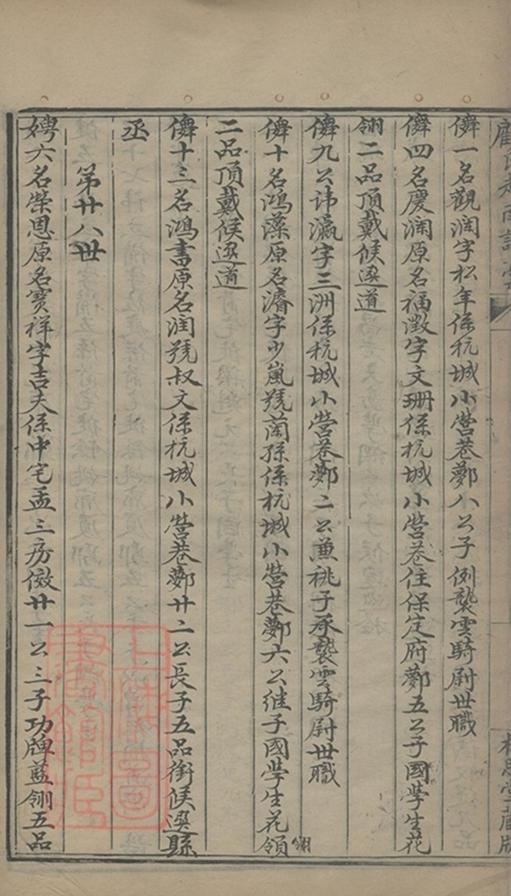 儕一名觀潤字松年係杭城小營巷鄭八公子例襲雲騎尉世職
儕四名慶潤原名福澂字文珊係杭城小營巷住保定府鄭五公子國學生花
翎二品頂戴候選道
儕九公諱瀛字三洲係杭城小營巷鄭二公兼祧子承襲雲騎尉世職
儕十名鴻藻原名濬字少嵐號蘭孫係杭城小營巷鄭六公繼子國學生花領
翎
二品頂戴候選道
儕十三名鴻書原名潤號叔文係杭城小營巷鄭廿二公長子五品銜候選縣
丞
第廿八世
娉六名榮恩原名寶祥字吉夫係中宅孟三房儆廿一公三子功牌藍翎五品